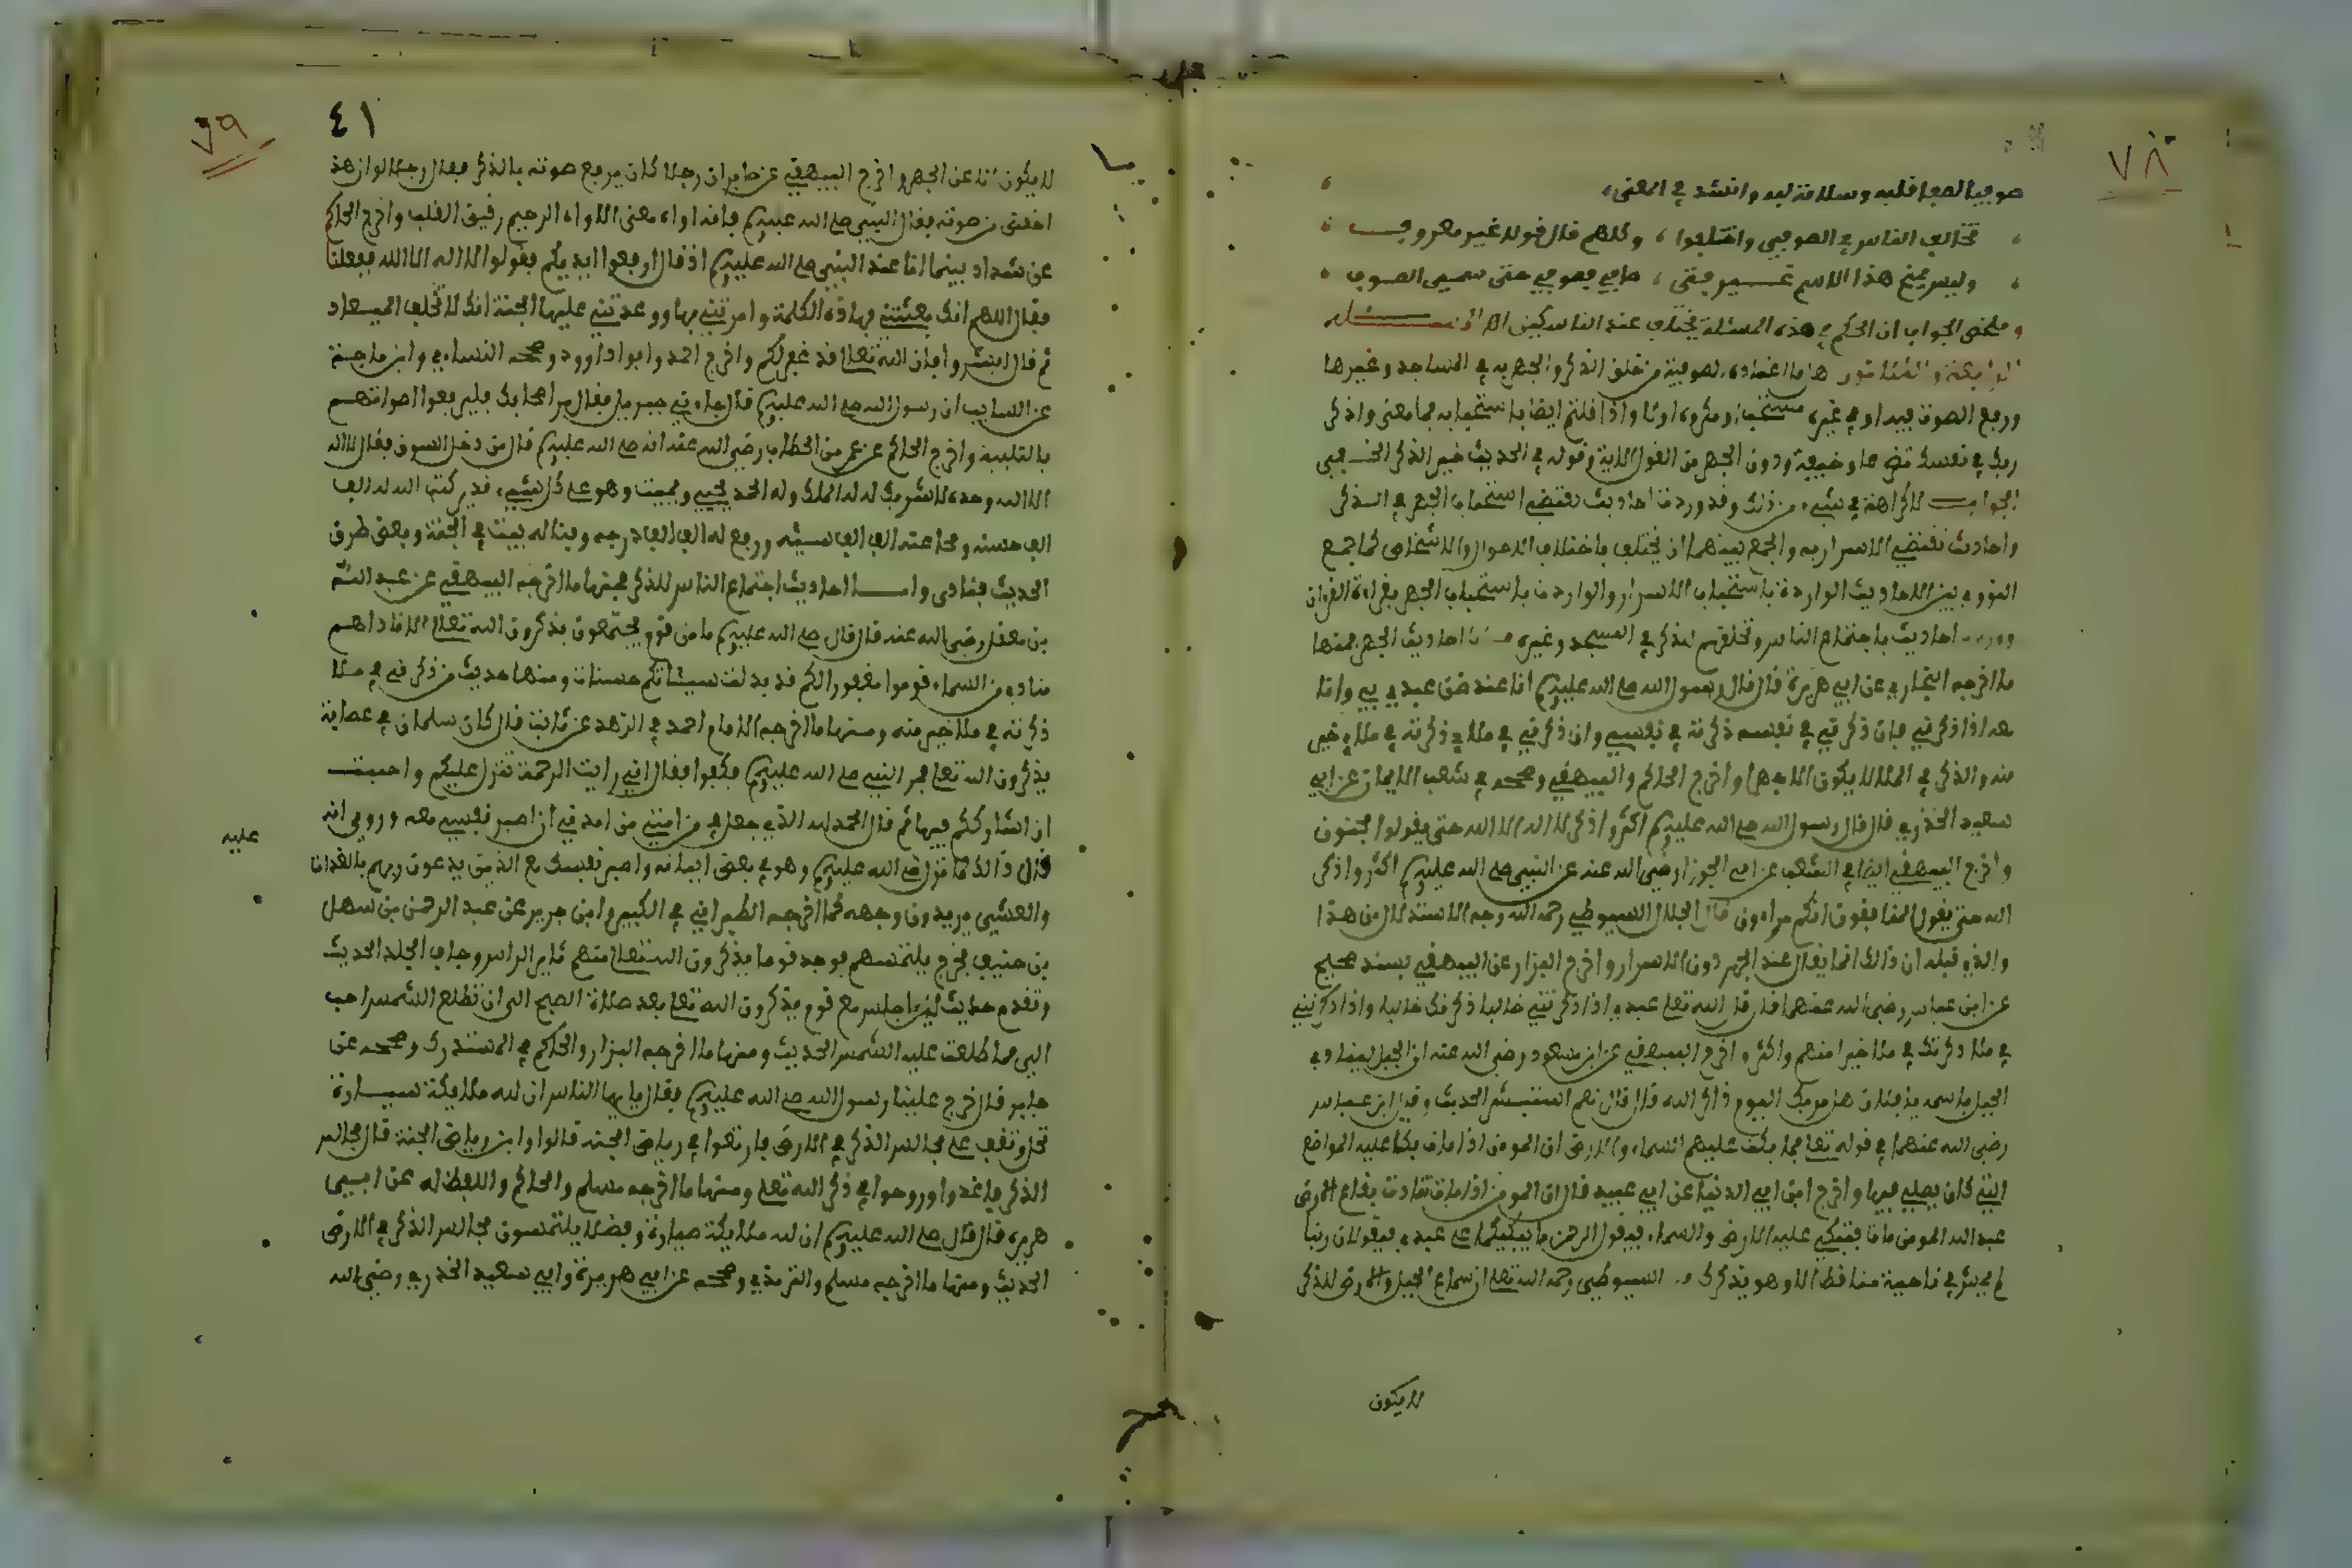 ٧٨
صوفيا لصفا قلبه وسلامة لبه وانشد في المعنى
تخالف الناس في الصوفي واختلفوا ، وكلهم قال قولا غير معروف
وليس يمنح هذا الاسم غير فتى ، صافى فصوفي حتى سمي الصوفي
وملخص الجواب ان الحكم في هذه المسئلة يختلف عند الناس
ما اعتاده الصوفية من حلق الذكر والجهر به في المساجد وغيرها
ورفع الصوت فيه او في غيره مستحب او مكروه اولا واذا قلتم ايضا باستحبابه فما معنى واذكر
ربك في نفسك تضرعا وخيفة ودون الجهر من القول الاية وقوله في الحديث خير الذكر الخفي
الجواب لا كراهة في شيء من ذلك وقد وردت احاديث تقتضي استحباب الجهر في الذكر
واحاديث تقتضي الاسرار به والجمع بينهما ان يختلف باختلاف الاحوال والاشخاص كما جمع
النووي بين الاحاديث الواردة باستحباب الاسرار والواردة باستحباب الجهر بقراءة القران
احاديث باجتماع الناس وتحلقهم للذكر في المسجد وغيره احاديث الجهر فمنها
ما اخرجه البخاري عن ابي هريرة قال قال رسول الله صلى الله عليه وسلم انا عند ظن عبدي بي وانا
معه اذا ذكرني فان ذكرني في نفسه ذكرته في نفسي وان ذكرني في ملا ذكرته في ملا خير
منه والذكر في الملا لا يكون الا جهرا واخرج الحاكم والبيهقي وصححه في شعب الايمان عن ابي
سعيد الخذري قال قال رسول الله صلى الله عليه وسلم اكثروا ذكر لا اله الا الله حتى يقولوا مجنون
واخرج البيهقي ايضا في الشعب عن ابي الجوزا رضي الله عنه عن النبي صلى الله عليه وسلم اكثروا ذكر
الله حتى يقول المنافقون انكم مراءون قال الجلال السيوطي رحمه الله وجه الاستدلال من هذا
والذي قبله ان ذالك انما يقال عند الجهر دون الاسرار واخرج البزار عن البيهقي بسند صحيح
عن ابن عباس رضي الله عنهما قال قال الله تعلى عبدي اذا ذكرتني خاليا ذكرتك خاليا واذا ذكرتني
في ملا ذكرتك في ملا خيرا منهم واكثر واخرج البيهقي عن ابن مسعود رضي الله عنه ان الجبل لينادي
الجبل باسمه يا فلان هل مر بك اليوم ذاكر الله فان قال نعم استبشر الحديث وقرا ابن عباس
رضي الله عنهما في قوله تعلى فما بكت عليهم السماء والارض ان المومن اذا مات بكا عليه المواضع
التي كان يصلي فيها واخرج ابن ابي الدنيا عن ابي عبيد قال ان المومن اذا مات تنادت بقاع الارض
عبد الله المومن مات فتبكي عليه الارض والسماء فيقول الرحمن ما يبكيكما على عبدي فيقولان ربنا
لم يمش في ناحية منا قط الا وهو يذكرك السيوطي رحمه الله تعلى ان سماع الجبل والارض للذكر
لا يكون
٧٩
٤١
لا يكون الا عن الجهر واخرج البيهقي عن جابر ان رجلا كان يرفع صوته بالذكر فقال رجل لو ان هذا
اخفض من صوته فقال النبي صلى الله عليه وسلم فانه اواه معنى الاواه الرحيم رقيق القلب واخرج الحاكم
عن شداد بينما انا عند النبي صلى الله عليه وسلم اذ قال ارفعوا ايديكم فقولوا لا اله الا الله ففعلنا
فقال اللهم انك بعثتني بهاذه الكلمة وامرتني بها ووعدتني عليها الجنة انك لا تخلف الميعاد
ثم قال ابشروا فان الله تعلى قد غفر لكم واخرج احمد وابو داوود وصححه النساءي وابن ماجة
عن السايب ان رسول الله صلى الله عليه وسلم قال جاءني جبريل فقال مر اصحابك فليرفعوا اصواتهم
بالتلبية واخرج الحاكم عن عمر بن الخطاب رضي الله عنه انه صلى الله عليه وسلم قال من دخل السوق فقال لا اله
الا الله وحده لا شريك له له الملك وله الحمد يحيي ويميت وهو على كل شيء قدير كتب الله له الف
الف حسنة ومحا عنه الف الف سيئة ورفع له الف الف درجة وبنا له بيت في الجنة وبعض طرق
الحديث فنادى واما احاديث اجتماع الناس للذكر فمنها ما اخرجه البيهقي عن عبد الله
بن مغفل رضي الله عنه قال قال صلى الله عليه وسلم ما من قوم يجتمعون يذكرون الله تعلى الا ناداهم
مناد من السماء قوموا مغفورا لكم قد بدلت سيئاتكم حسنات ومنها حديث من ذكرني في ملا
ذكرته في ملا خير منه ومنها ما اخرجه الامام احمد في الزهد عن ثابت قال كان سلمان في عصابة
يذكرون الله تعلى فمر النبي صلى الله عليه وسلم فكفوا فقال اني رايت الرحمة تنزل عليكم واحببت
ان اشارككم فيها ثم قال الحمد لله الذي جعل في امتي من امرني ان اصبر نفسي معه وروي انه
قال ذالك لما نزل عليه صلى الله عليه وسلم وهو في بعض ابياته واصبر نفسك مع الذين يدعون ربهم بالغداة
والعشي يريدون وجهه كما اخرجه الطبراني في الكبير وابن جرير عن عبد الرحمن بن سهل
بن حنيف فخرج يلتمسهم فوجد قوما يذكرون الله تعلى منهم ثاير الراس وجاف الجلد الحديث
وتقدم حديث لئن اجلس مع قوم يذكرون الله تعلى بعد صلاة الصبح الى ان تطلع الشمس احب
الي مما طلعت عليه الشمس الحديث ومنها ما اخرجه البزار والحاكم في المستدرك وصححه عن
جابر قال خرج علينا رسول الله صلى الله عليه وسلم فقال يا ايها الناس ان لله ملايكة سيارة
تحل وتقف على مجالس الذكر في الارض فارتعوا في رياض الجنة قالوا واين رياض الجنة قال مجالس
الذكر فاغدوا وروحوا في ذكر الله تعلى ومنها ما اخرجه مسلم والحاكم واللفظ له عن ابي
هريرة قال قال صلى الله عليه وسلم ان لله ملايكة سيارة وفضلا يلتمسون مجالس الذكر في الارض
الحديث ومنها ما اخرجه مسلم والترمذي وصححه عن ابي هريرة وابي سعيد الخذري رضي الله
عليه